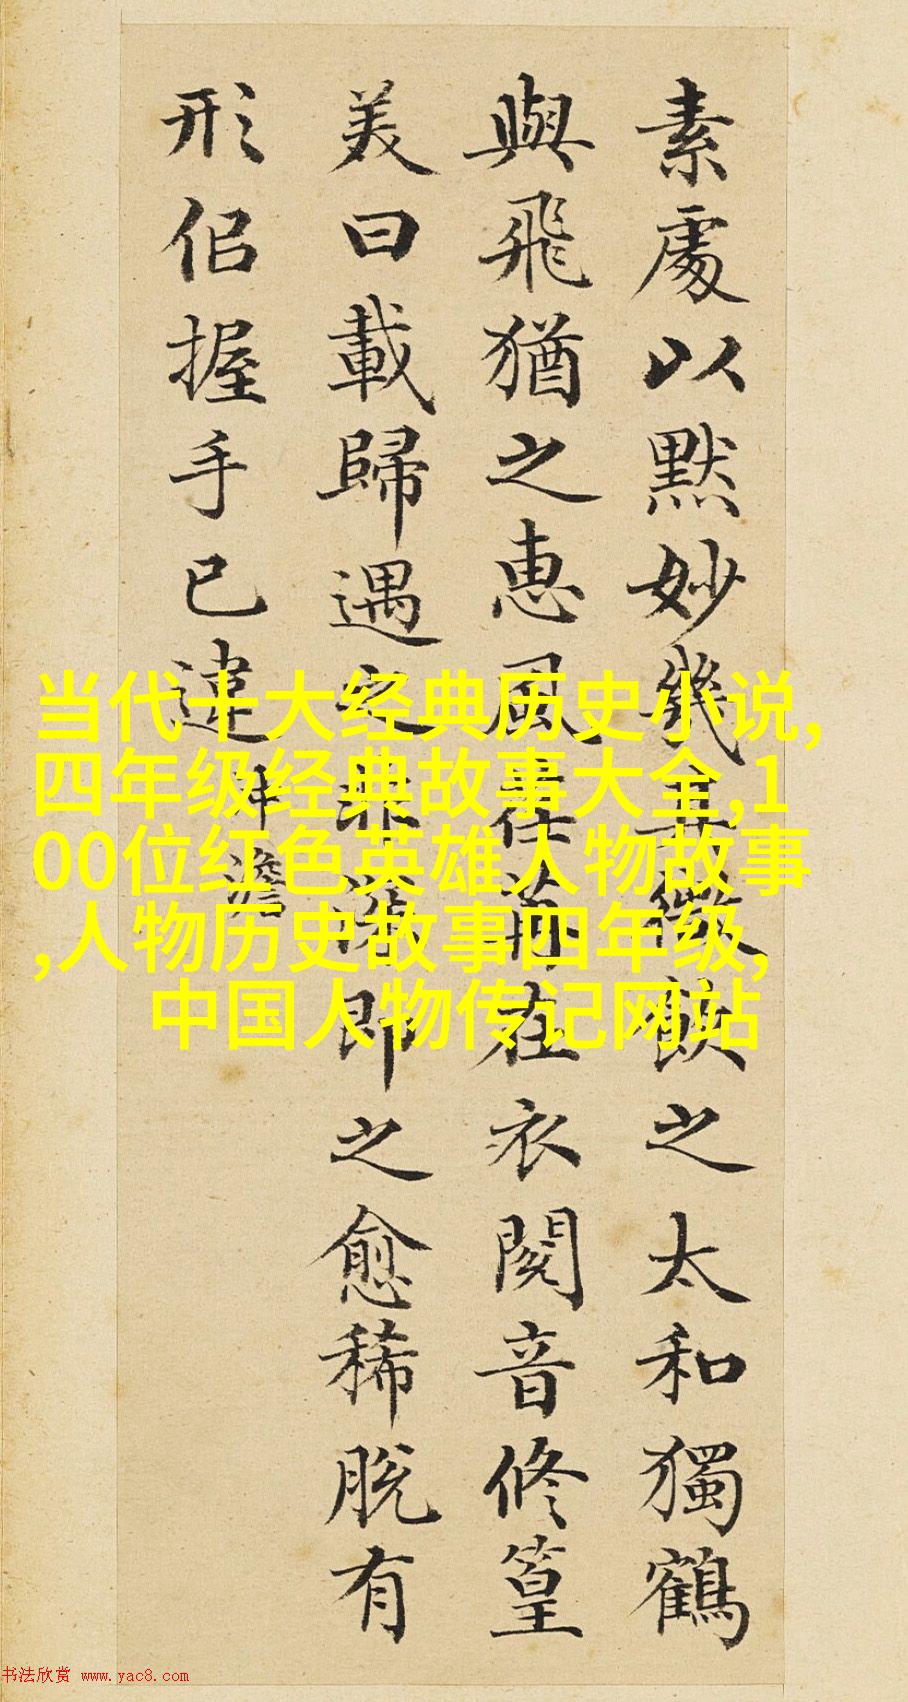 素處以默妙幾其微飲之太和獨鶴
與飛猶之惠風荏苒在衣閱音修篁
美曰載歸遇之非深即之愈稀脫有
形佀握手已違
澹
当代十大经典历史小说,
四年级经典故事大全,1
00位红色英雄人物故事
,人物历史故事四年级,
中国人物传记网站
书法欣赏 www.yac8.com